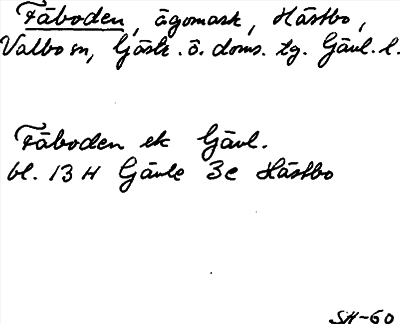 Fäboden, ägomark, Hästbo,
Valbo sn, Gästr. ö. doms. tg. Gävl. l.
Fäboden ek Gävl.
bl. 13 H Gävle 3c Hästbo
SH-60